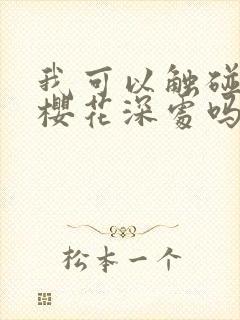 我可以触碰
樱花深处吗
松本一个